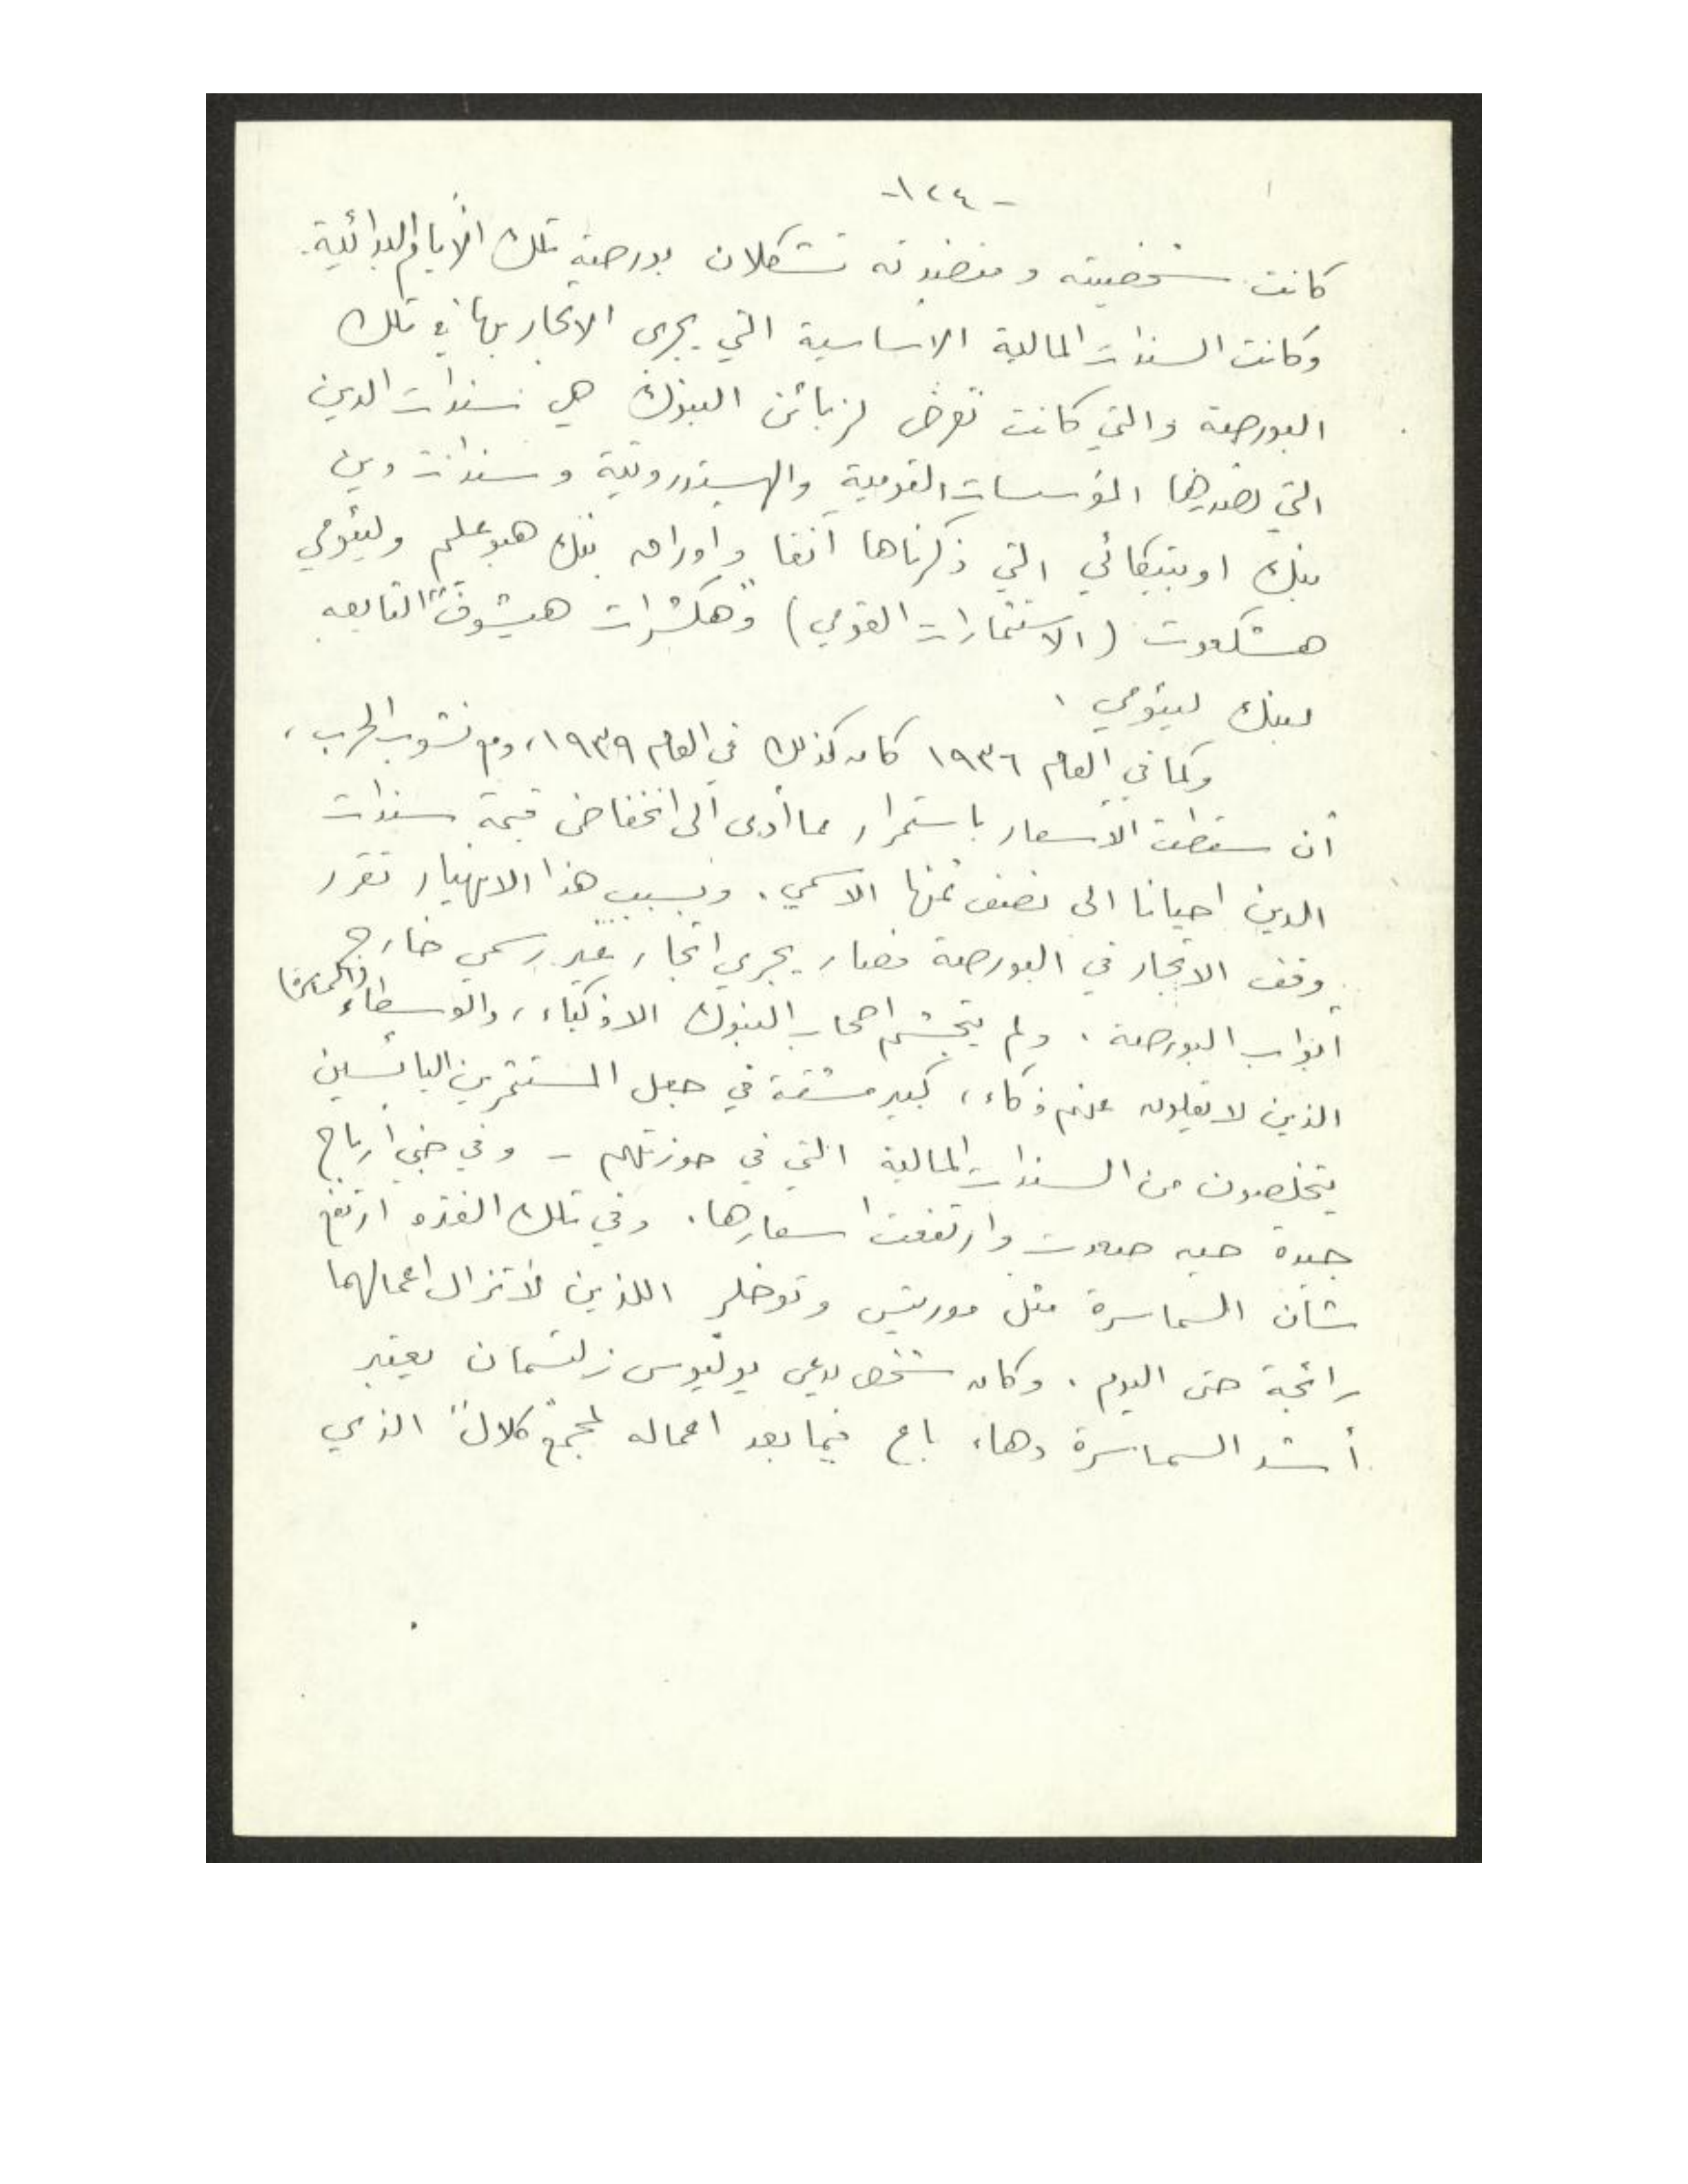 -١٢٤-
كانت شخصيته ومنضدته تشكلان بورصة تلك الأيام البدائية.
وكانت السندات المالية الاساسية التي يجرى الاتجار بها في تلك
البورصة والتي كانت تعرض لزبائن البنوك هي سندات الدين
التي تصدرها المؤسسات القومية والهستدروتية وسندات دين
بنك اوبتيكائي التي ذكرناها آنفا واوراق بنك هبوعليم وليئومي
هشكعوت (الاستثمارات القومي) و"هكشرات هيشوف" التابعه
لبنك ليئومي.
وكما في العام ١٩٣٦ كان كذلك في العام ١٩٣٩، ومع نشوب الحرب،
أن سقطت الأسعار باستمرار مما أدى الى انخفاض قيمة سندات
الدين احيانا الى نصف ثمنها الاسمي. وبسبب هذا الانهيار تقرر
وقف الاتجار في البورصة فصار يجري اتجار غير رسمي خارج
أبواب البورصة. ولم يتجشم اصحاب البنوك الاذكياء، والوسطاء (السماسرة)
الذين لا يقلون عنهم ذكاء، كبير مشقة في جعل المستثمرين اليائسين
يتخلصون من السندات المالية التي في حوزتهم - وفي جني أرباح
جيدة حين صعدت وارتفعت اسعارها. وفي تلك الفترة ارتفع
شأن السماسرة مثل موريتس وتوخلر اللذين لا تزال اعمالهما
رائجة حتى اليوم. وكان شخص يدعى يوليوس زلتسمان يعتبر
أشد السماسرة دهاء، باع فيما بعد اعماله لمجمع "كلال" الذي